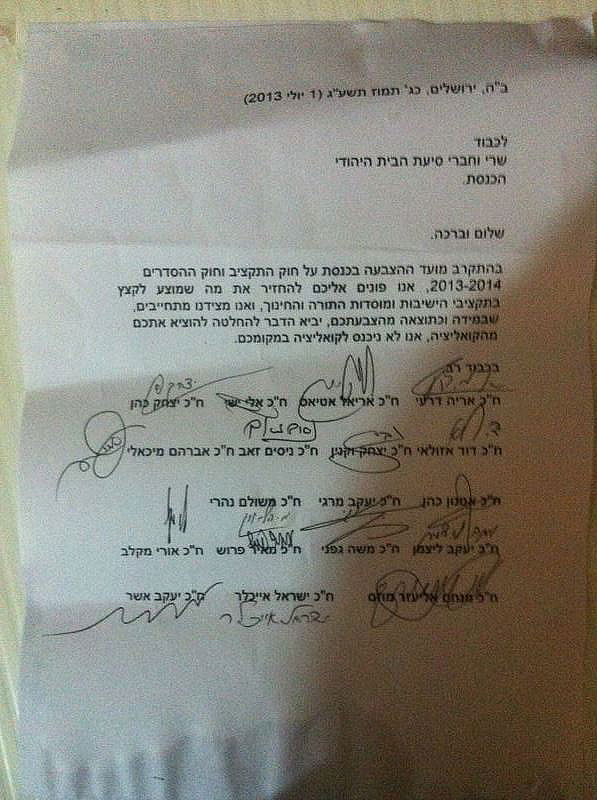 ב"ה, ירושלים, כג' תמוז תשע"ג (1 יולי 2013)
לכבוד
שרי וחברי סיעת הבית היהודי
הכנסת.
שלום וברכה.
בהתקרב מועד ההצבעה בכנסת על חוק התקציב וחוק ההסדרים
2013-2014, אנו פונים אליכם להחזיר את מה שמוצע לקצץ
בתקציבי הישיבות ומוסדות התורה והחינוך, ואנו מצידנו מתחייבים,
שבמידה וכתוצאה מהצבעתכם, יביא הדבר להחלטה להוציא אתכם
מהקואליציה, אנו לא ניכנס לקואליציה במקומכם.
בכבוד רב,
ח"כ אריה דרעי ח"כ אריאל אטיאס ח"כ אלי ישי ח"כ יצחק כהן
ח"כ דוד אזולאי ח"כ יצחק וקנין ח"כ ניסים זאב ח"כ אברהם מיכאלי
ח"כ אמנון כהן ח"כ יעקב מרגי ח"כ משולם נהרי
ח"כ יעקב ליצמן ח"כ משה גפני ח"כ מאיר פרוש ח"כ אורי מקלב
ח"כ מנחם אליעזר מוזס ח"כ ישראל אייכלר ח"כ יעקב אשר
ישראל אייכלר